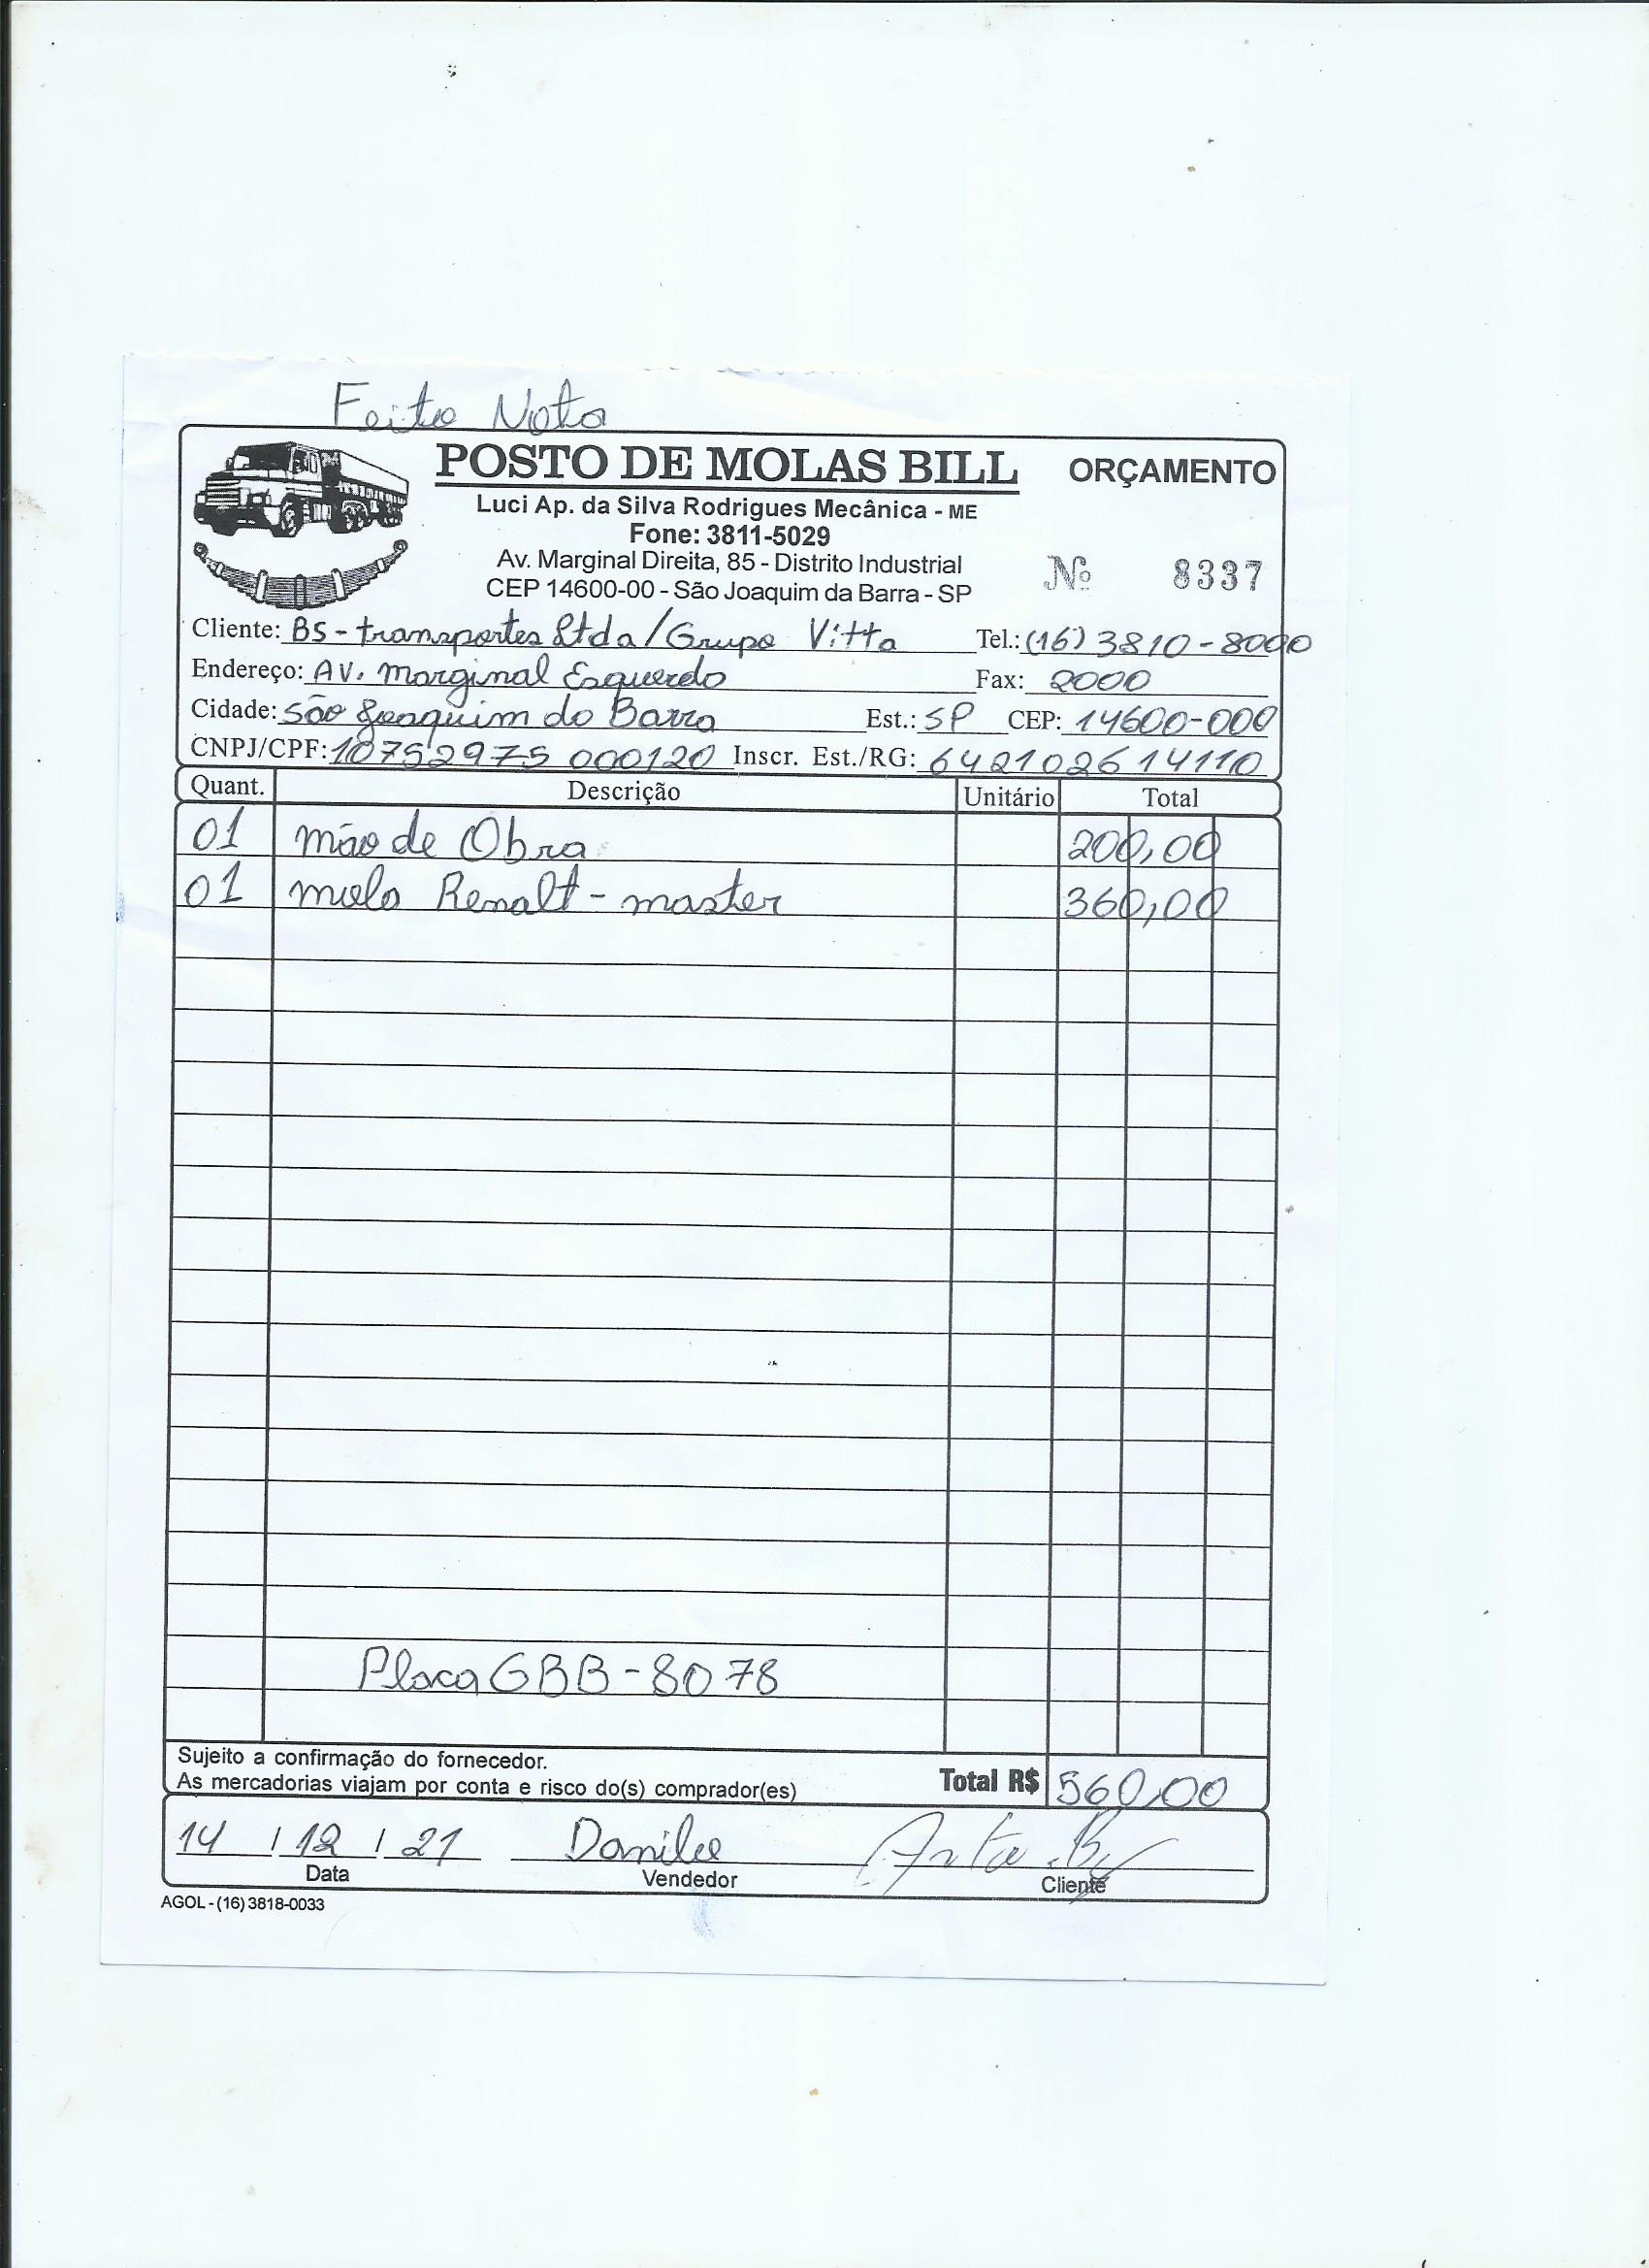 Feito Nota
POSTO DE MOLAS BILL ORÇAMENTO
Luci Ap. da Silva Rodrigues Mecânica - ME
Fone: 3811-5029
Av. Marginal Direita, 85 - Distrito Industrial
CEP 14600-00 - São Joaquim da Barra - SP
Nº 8337
Cliente: BS - transportes Ltda / Grupo Vitta Tel.: (16) 3810-8000
Endereço: AV. Marginal Esquerdo Fax: 2000
Cidade: São Joaquim da Barra Est.: SP CEP: 14600-000
CNPJ/CPF: 10752975 000120 Inscr. Est./RG: 642102614110
Quant. Descrição Unitário Total
01 mão de Obra 200,00
01 mola Renalt - master 360,00
Placa GBB-8078
Sujeito a confirmação do fornecedor.
As mercadorias viajam por conta e risco do(s) comprador(es) Total R$ 560,00
14 / 12 / 21 Danilo
Data Vendedor Cliente
AGOL - (16) 3818-0033